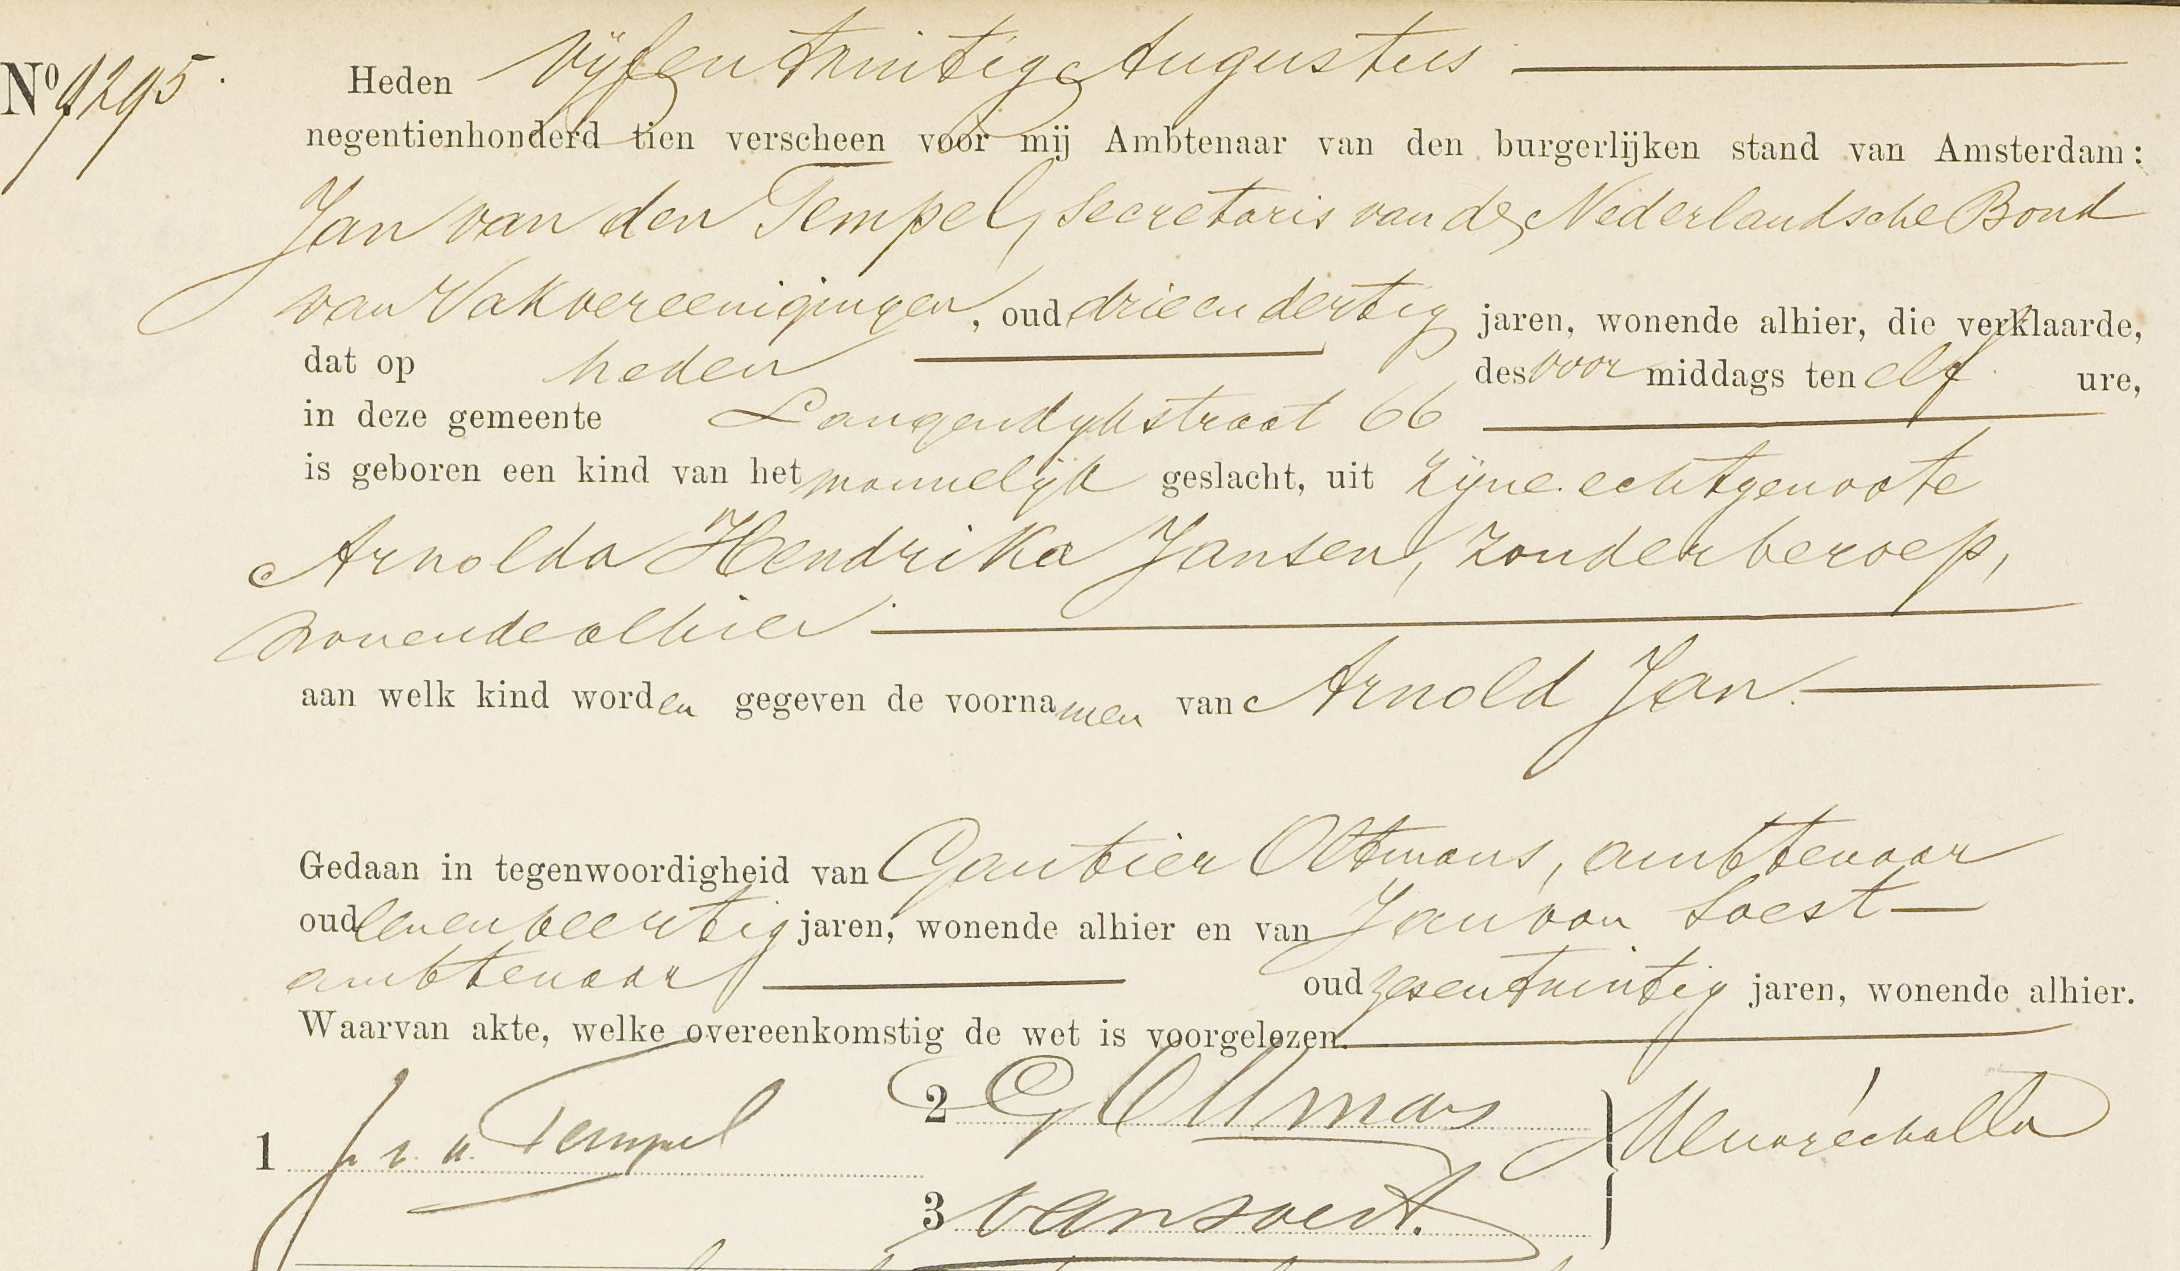 No 9295.
Heden vijfentwintig Augustus
negentienhonderd tien verscheen voor mij Ambtenaar van den burgerlijken stand van Amsterdam:
Jan van den Tempel, secretaris van de Nederlandsche Bond
van Vakvereenigingen, oud drieendertig jaren, wonende alhier, die verklaarde,
dat op heden des voor middags ten elf ure,
in deze gemeente Langendijkstraat 66
is geboren een kind van het mannelijk geslacht, uit zijne echtgenoote
Arnolda Hendrika Jansen, zonder beroep,
wonende alhier
aan welk kind worden gegeven de voornamen van Arnold Jan.
Gedaan in tegenwoordigheid van Gautier Oltmans, ambtenaar
oud eenenveertig jaren, wonende alhier en van Jan van Soest
ambtenaar oud zesentwintig jaren, wonende alhier.
Waarvan akte, welke overeenkomstig de wet is voorgelezen.
1 J. v. d. Tempel
2 G Oltmans
3 van Soest.